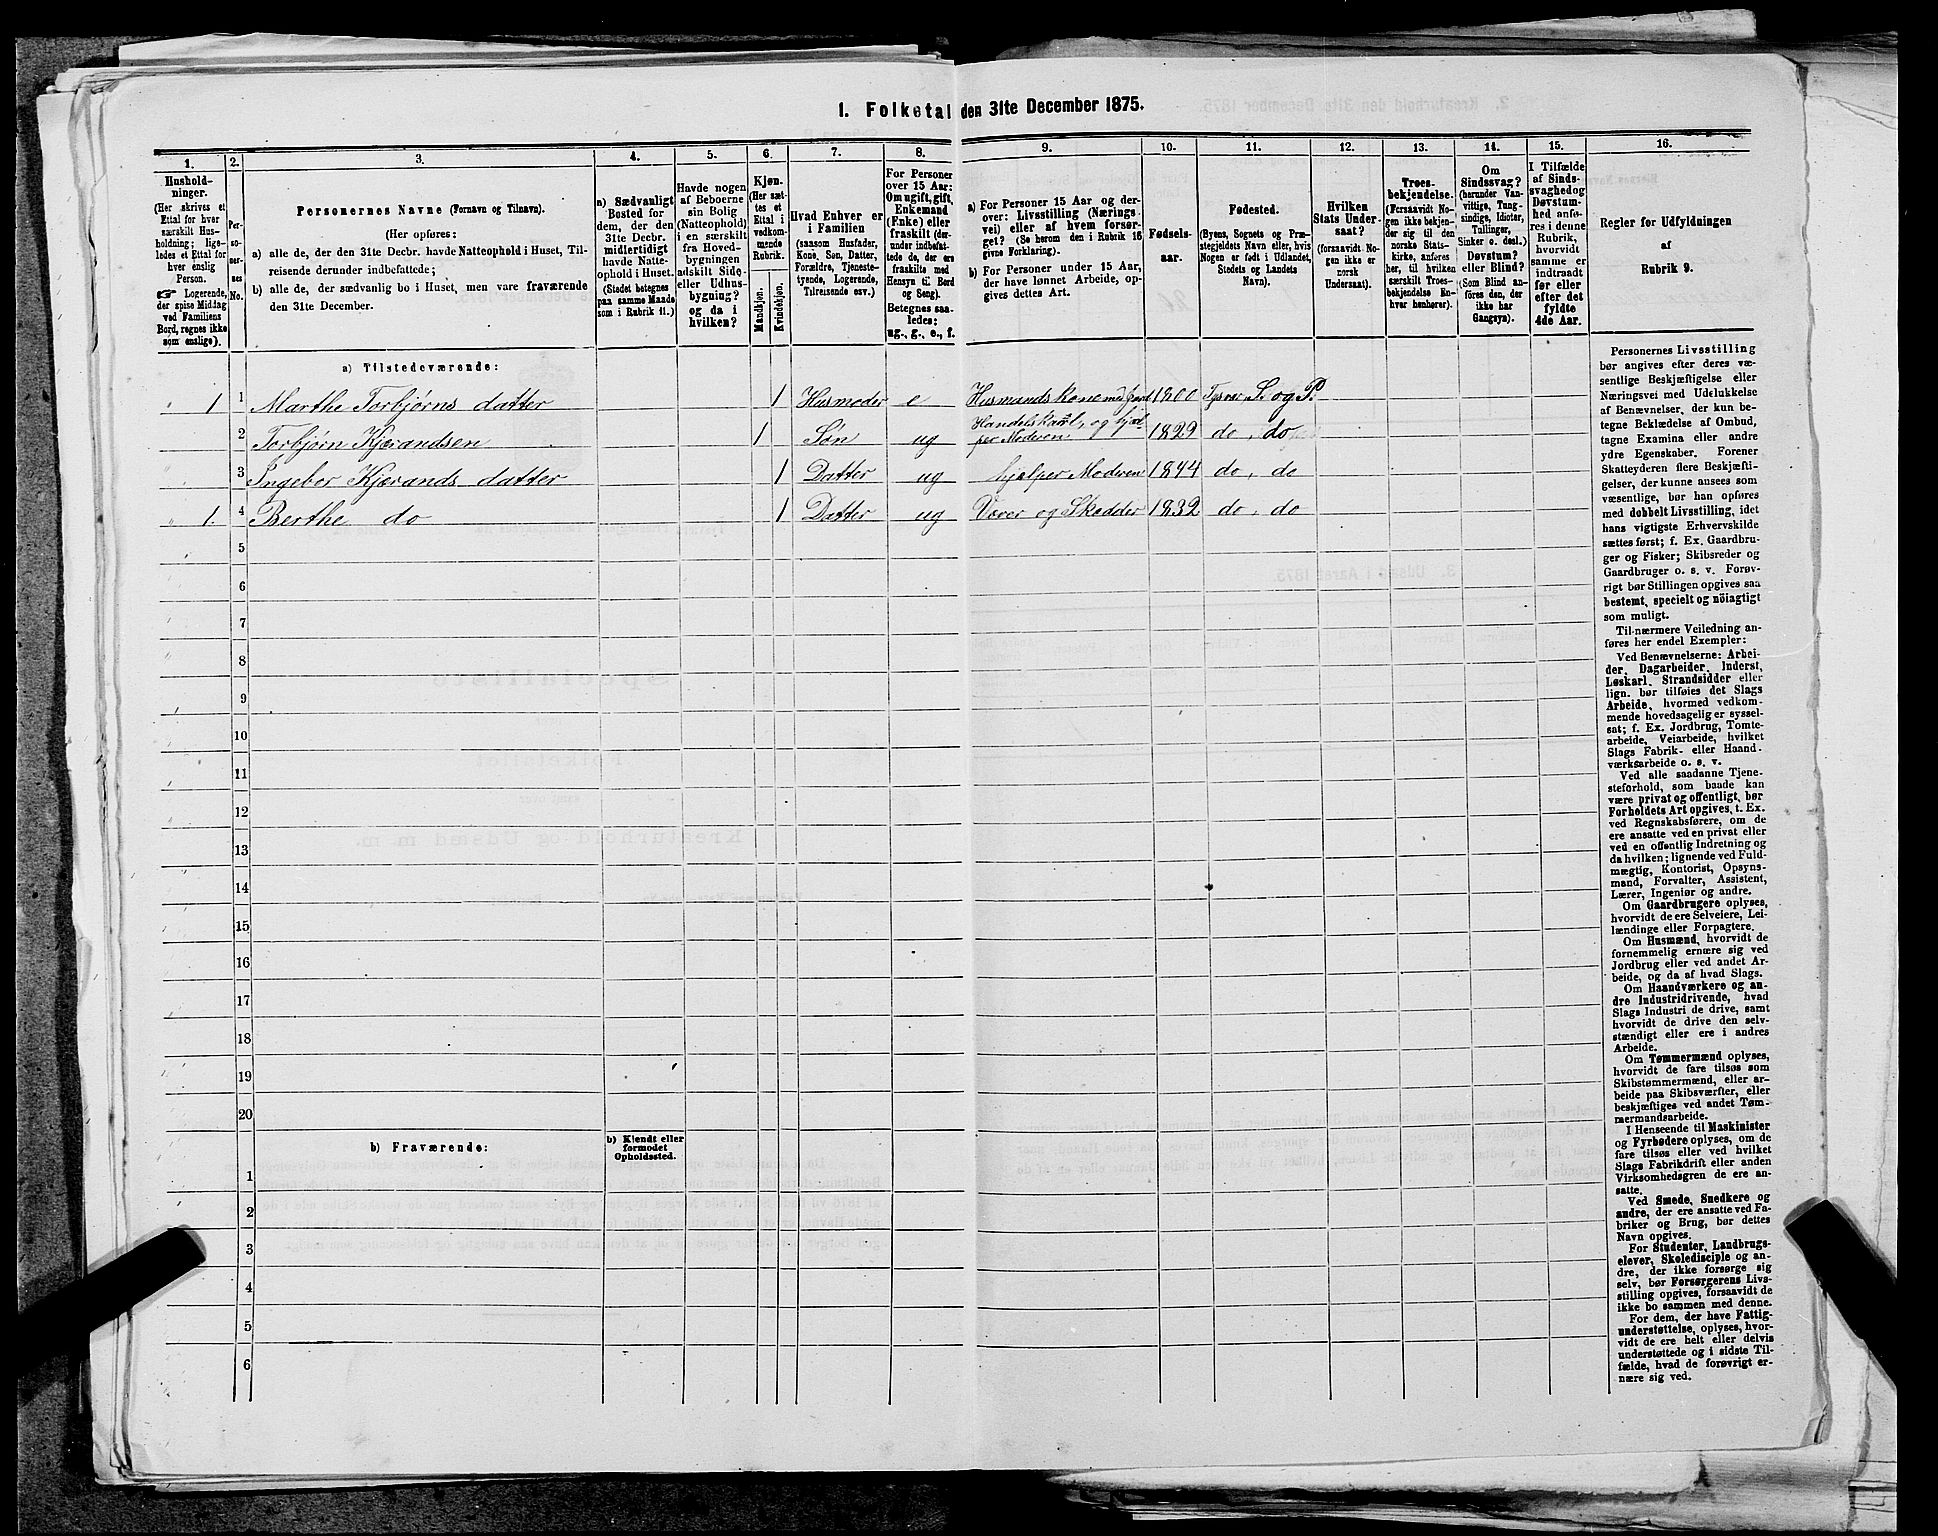 1. Folketal den 31te December 1875.
1. 2. 3. 4. 5. 6. 7. 8. 9. 10. 11. 12. 13. 14. 15. 16.
Hushold-
ninger.
(Her skrives et
Ettal for hver
særskilt Hus-
holdning; lige-
ledes et Ettal for
hver enslig
Person.
☞ Logerende,
der spise Middag
ved Familiens
Bord, regnes ikke
som enslige).
Per-
so-
ner-
nes
No.
Personernes Navne (Fornavn og Tilnavn).
(Her opføres:
a) alle de, der den 31te Decbr. havde Natteophold i Huset, Til-
reisende derunder indbefattede;
b) alle de, der sædvanlig bo i Huset, men vare fraværende
den 31te December.
a) Sædvanligt
Bosted for
dem, der den
31te Decbr.
midlertidigt
havde Natte-
ophold i Huset.
(Stedet betegnes
paa samme Maade
som i Rubrik 11.)
Havde nogen
af Beboerne
sin Bolig
(Natteophold)
i en særskilt
fra Hoved-
bygningen
adskilt Side-
eller Udhus-
bygning?
og da i
hvilken?
Kjøn.
(Her sæt-
tes et
Ettal i
vedkom-
mende
Rubrik.
Mandkjøn.
Kvindekjøn.
Hvad Enhver er
i Familien
(saasom Husfader,
Kone, Søn, Datter,
Forældre, Tjeneste-
tyende, Logerende,
Tilreisende osv.)
For Personer
over 15 Aar:
Om ugift, gift,
Enkemand
(Enke) eller
fraskilt (der-
under indbefat-
tede de, der ere
fraskilte med
Hensyn til Bord
og Seng).
Betegnes saa-
ledes:
ug., g., e., f.
a) For Personer 15 Aar og der-
over: Livsstilling (Nærings-
vei) eller af hvem forsør-
get? (Se herom den i Rubrik 16
givne Forklaring).
b) For Personer under 15 Aar,
der have lønnet Arbeide, op-
gives dettes Art.
Fødsels-
aar.
Fødested.
(Byens, Sognets og Præ-
stegjeldets Navn eller, hvis
Nogen er født i Udlandet,
Stedets og Landets
Navn).
Hvilken
Stats Under-
saat?
(forsaavidt No-
gen ikke er
norsk
Undersaat).
Troes-
bekjendelse.
(Forsaavidt No-
gen ikke bekjen-
der sig til den
norske Stats-
kirke, anføres
her, til hvilken
særskilt Troes-
bekjendelse En-
hver henhører).
Om
Sindssvag?
(herunder Van-
vittige, Tung-
sindige, Idioter,
Tullinger,
Sinker o. desl.)
Døvstum?
eller Blind?
(Som Blind an-
føres den, der
ikke har
Gangsyn).
I Tilfælde
af Sinds-
svaghed og
Døvstum-
hed anfø-
res i denne
Rubrik,
hvorvidt
samme er
indtraadt
før eller
efter det
fyldte
4de Aar.
Regler for Udfyldningen
af
Rubrik 9.
a) Tilstedeværende:
1 1 Marthe Torbjørns datter 1 Husmoder e Husmandskone med jord 1800 Tysvær S. og P.
2 Torbjørn Kjerandsen 1 Søn ug Handelskarl, og hjæl-
per Moderen 1829 do, do
3 Ingebor Kjerands datter 1 Datter ug hjelper Moderen 1844 do, do
1. 4 Berthe do 1 Datter ug Væver og Skrædder 1832 do, do
5
6
7
8
9
10
11
12
13
14
15
16
17
18
19
20
b) Fraværende:
b) Kjendt eller
formodet
Opholdssted.
1
2
3
4
5
6
Personernes Livsstilling
bør angives efter deres væ-
sentlige Beskjæftigelse eller
Næringsvei med Udelukkelse
af Benævnelser, der kun be-
tegne Beklædelse af Ombud,
tagne Examina eller andre
ydre Egenskaber. Forener
Skatteyderen flere Beskjæfti-
gelser, der kunne ansees som
væsentlige, bør han opføres
med dobbelt Livsstilling, idet
hans vigtigste Erhvervskilde
sættes først; f. Ex. Gaardbru-
ger og Fisker; Skibsreder og
Gaardbruger o. s. v. Forøv-
rigt bør Stillingen opgives saa
bestemt, specielt og nöiagtigt
som muligt.
Til nærmere Veiledning an-
føres her endel Exempler:
Ved Benævnelserne: Arbei-
der, Dagarbeider, Inderst,
Løskarl, Strandsidder eller
lign. bør tilføies det Slags
Arbeide, hvormed vedkom-
mende hovedsagelig er syssel-
sat; f. Ex. Jordbrug, Tomte-
arbeide, Veiarbeide, hvilket
Slags Fabrik- eller Haand-
værksarbeide o. s. v.
Ved alle saadanne Tjene-
steforhold, som baade kan
være privat og offentligt, bør
Forholdets Art opgives, t. Ex.
ved Regnskabsførere, om de
ere ansatte ved en privat eller
ved en offentlig Indretning og
da hvilken; lignende ved Fuld-
mægtig, Kontorist, Opsyns-
mand, Forvalter, Assistent,
Lærer, Ingeniør og andre.
Om Gaardbrugere oplyses,
hvorvidt de ere Selveiere, Lei-
lændinge eller Forpagtere.
Om Husmænd, hvorvidt de
fornemmelig ernære sig ved
Jordbrug eller ved andet Ar-
beide, og da af hvad Slags.
Om Haandværkere og an-
dre Industridrivende, hvad
Slags Industri de drive, samt
hvorvidt de drive den selv-
stændigt eller ere i andres
Arbeide.
Om Tømmermænd oplyses,
hvorvidt de fare tilsøs som
Skibstømmermænd, eller ar-
beide paa Skibsværfter, eller
beskjæftiges ved andet Tøm-
mermandsarbeide.
I Henseende til Maskinister
og Fyrbødere oplyses, om de
fare tilsøs eller ved hvilket
Slags Fabrikdrift eller anden
Virksomhedsgren de ere an-
satte.
Ved Smede, Snedkere og
andre, der ere ansatte ved Fa-
briker og Brug, bør dettes
Navn opgives.
For Studenter, Landbrugs-
elever, Skoledisciple og an-
dre, der ikke forsørge sig
selv, bør Forsørgerens Livs-
stilling opgives, forsaavidt de
ikke bo sammen med denne.
For dem, der have Fattig-
understøttelse, oplyses, hvor-
vidt de ere helt eller delvis
understøttede og i sidste Til-
fælde, hvad de forøvrigt er-
nære sig ved.